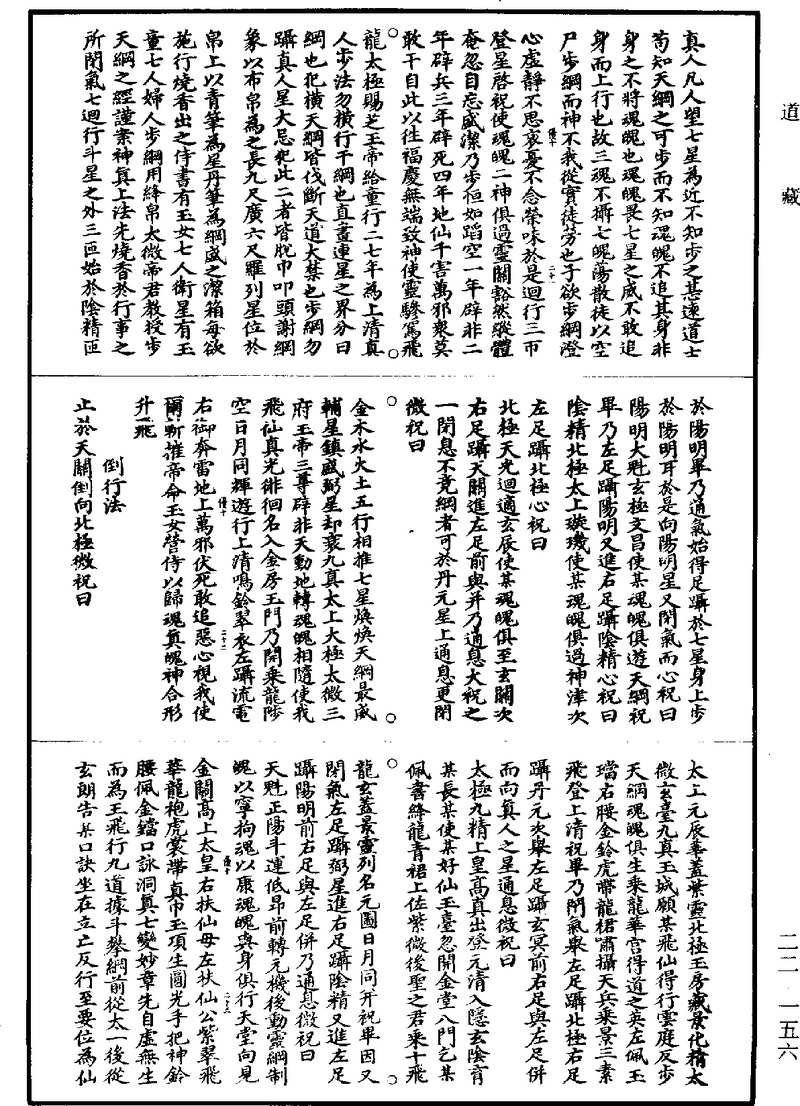 道藏
真人凡人望七星為近不知步之甚遠道士
苟知天綱之可步而不知魂魄不追其身非
身之不將魂魄也魂魄畏七星之威不敢追
身而上行也故三魂不擕七魄蕩散徒以空
尸步綱而神不我從實徒勞也子欲步綱澄
心虛靜不思哀憂不念榮味於是迴行三帀
登星啓祝使魂魄二神俱過靈關豁然縱體
奄忽自忘感潔乃步恒如蹈空一年辟非二
年辟兵三年辟死四年地仙千害萬邪衆莫
敢干自此以往福慶無端致神使靈驂駕飛
龍太極賜芝玉帝給童行二七年為上清真
人步法勿橫行干綱也直畫連星之界分曰
綱也犯橫天綱皆伐斷天道大禁也步綱勿
躡真人星大忌犯此二者皆脫巾叩頭謝綱
象以布帛為之長九尺廣六尺羅列星位於
帛上以青筆為星丹筆為綱盛之潔箱每欲
施行燒香出之侍書有玉女七人衛星有玉
童七人婦人步綱用絳帛太微帝君教授步
天綱之經謹案神真上法先燒香於行事之
所閉氣七迴行斗星之外三匝始於陰精匝
於陽明畢乃通氣始得足躡於七星身上步
於陽明耳於是向陽明星又閉氣而心祝曰
陽明大魁玄極文昌使某魂魄俱遊天綱祝
畢乃左足躡陽明又進右足躡陰精心祝曰
陰精北極太上璇璣使某魂魄俱過神津次
左足躡北極心祝曰
北極天光迴適玄辰使某魂魄俱至玄關次
右足躡天關進左足前與并乃通息大祝之
一閉息不竟綱者可於丹元星上通息更閉
微祝曰
金木水火土五行相推七星煥煥天綱最威
輔星鎮盛弼星却衰九真太上大極太微三
府玉帝三尊辟非天動地轉魂魄相隨使我
飛仙真光徘徊名入金房玉門乃開乘龍陟
空日月同輝遊行上清鳴鈴翠衣左躡流電
右御奔雷地上萬邪伏死敢追惡心視我使
爾斬摧帝命玉女營侍以歸魂真魄神合形
升飛
倒行法
止於天關倒向北極微祝曰
太上元辰華蓋葉靈北極玉房藏景化精太
微玄臺九真玉城願某飛仙得行雲庭反步
天綱魂魄俱生乘龍華宫得道之英左佩玉
璫右腰金鈴虎帶龍裙肅攝天兵乘景三素
飛登上清祝畢乃閉氣舉左足躡北極右足
躡丹元次舉左足躡玄冥前右足與左足併
而向真人之星通息微祝曰
太極九精上皇高真出登元清入隱玄陰育
某長某使某好仙玉臺忽開金堂八門乞某
佩書絳龍青裙上佐紫微後聖之君乘十飛
龍玄蓋景靈列名元圖日月同并祝畢因又
閉氣左足躡弼星進右足躡陰精又進左足
躡陽明前右足與左足併乃通息微祝曰
天魁正陽斗運低昂前轉元機後動靈綱制
魄以寧拘魂以康魂魄與身俱行天堂向見
金闕高上太皇右扶仙母左扶仙公紫翠飛
華龍袍虎裳帶真巾玉項生圓光手把神鈴
腰佩金鐺口詠洞真七變妙章先自虛無生
而為王飛行九道據斗攀綱前從太一後從
玄朗告兵口訣坐在立亡反行至要位為仙
二二一五六